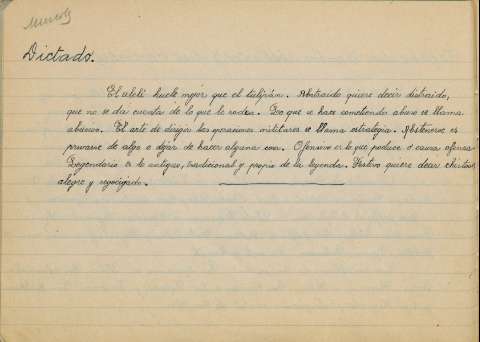 Dictado.
El alelí huele mejor que el tulipán. Abstraído quiere decir distraído,
que no se da cuenta de lo que le rodea. Lo que se hace cometiendo abuso se llama
abusivo. El arte de dirigir las operaciones militares se llama estrategia. Abstenerse es
privarse de algo o dejar de hacer alguna cosa. Ofensivo es lo que produce o causa ofensa.
Legendario es lo antiguo, tradicional y propio de la leyenda. Festivo quiere decir chistoso,
alegre y regocijado.